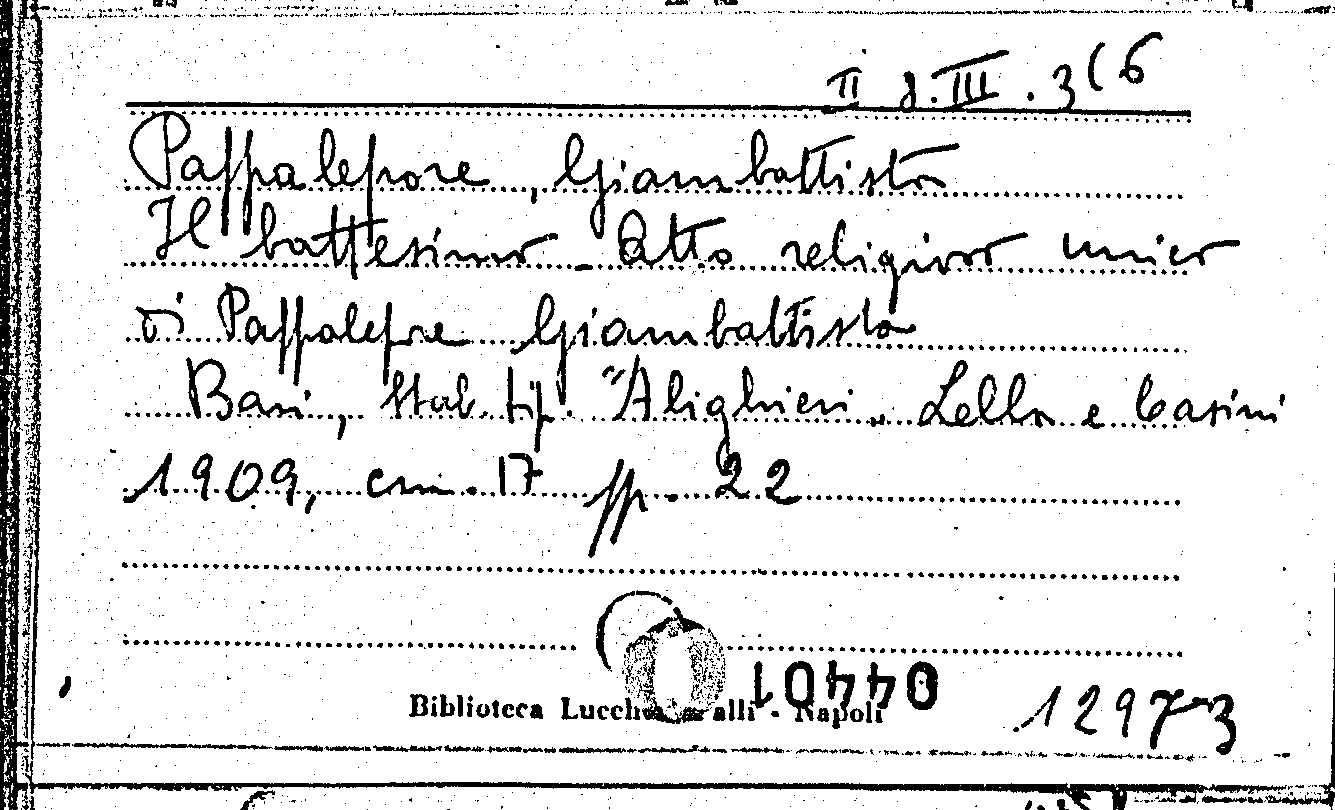 II 8.III.3(6
Pappalepore, Giambattista
Il battesimo - Atto religioso unico
di Pappalepre Giambattista
Bari, Stab. tip. "Alighieri" Lello e Casini
1909, cm. 17 pp. 22
Biblioteca Lucchesi Palli - Napoli
04401
12973